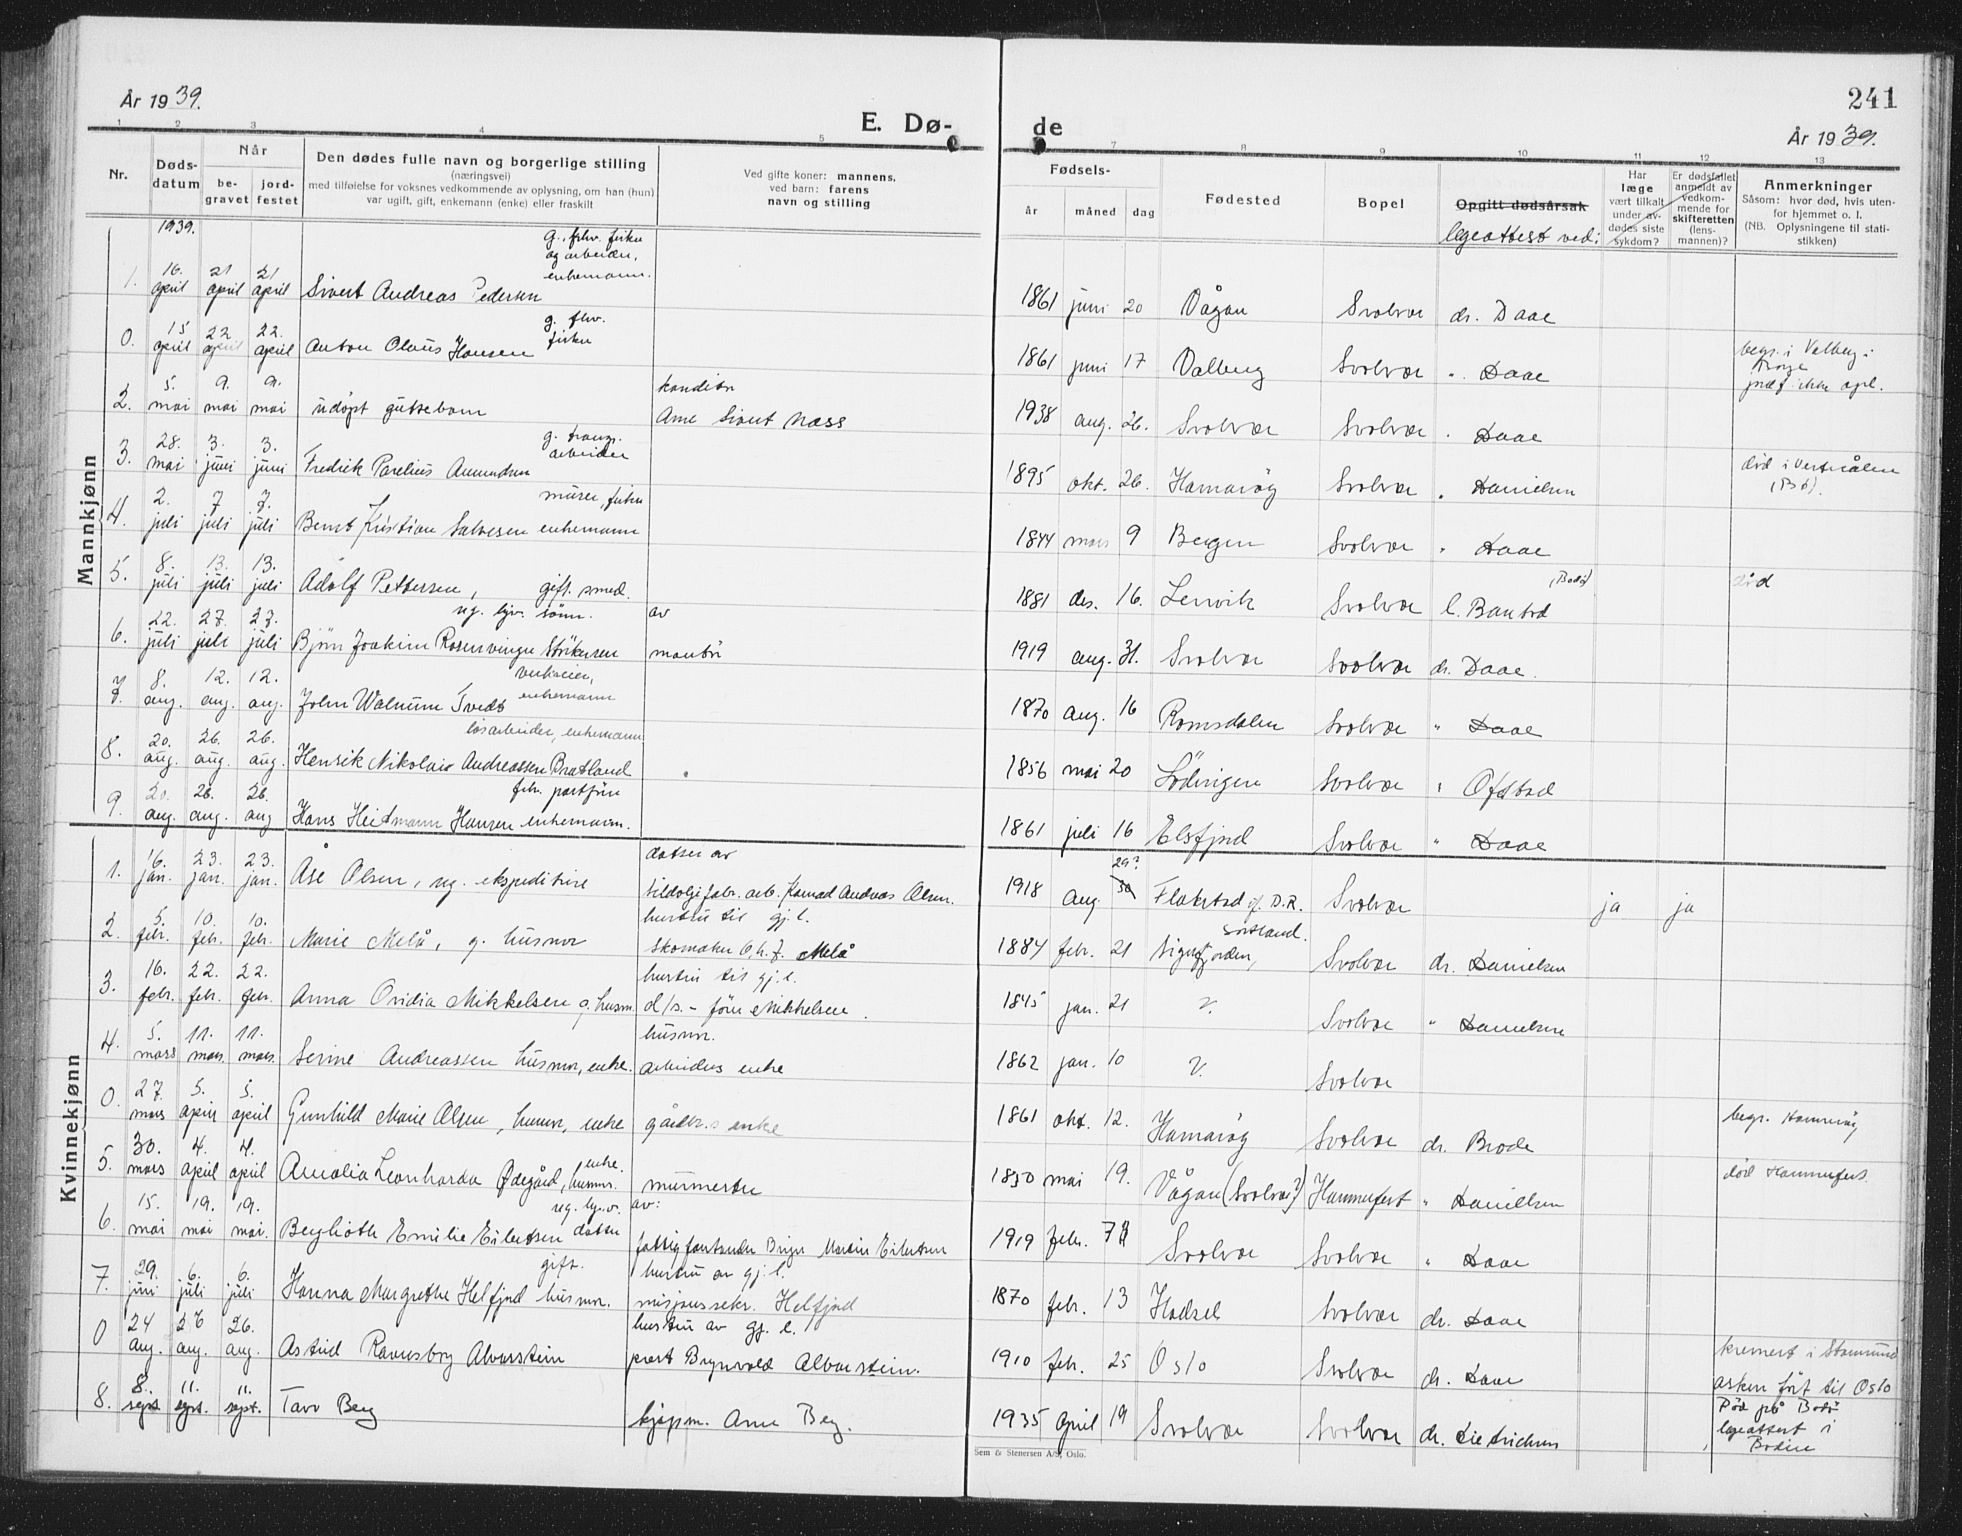 År 1939.
E. Dø-
de
241
År 1939.
1 2 3 4 5
7 8 9 10 11 12 13
Nr.
Døds-
datum
Når
be-
gravet
jord-
festet
Den dødes fulle navn og borgerlige stilling
(næringsvei)
med tilføielse for voksnes vedkommende av oplysning, om han (hun)
var ugift, gift, enkemann (enke) eller fraskilt
Ved gifte koner: mannens,
ved barn: farens
navn og stilling
Fødsels-
år måned dag
Fødested
Bopel
Opgitt dødsårsak
legeattest ved:
Har
læge
vært tilkalt
under av-
dødes siste
sykdom?
Er dødsfallet
anmeldt av
vedkom-
mende for
skifteretten
(lens-
mannen)?
Anmerkninger
Såsom: hvor død, hvis uten-
for hjemmet o. l.
(NB. Oplysningene til stati-
stikken)
Mannkjønn
1939.
g., fhv. fisker
og arbeider,
enkemann.
1. 16. april 21 april 21 april Sivert Andreas Pedersen 1861 juni 20 Vågan Svolvær dr. Daae
g. fhv.
fisker
0. 15 april 22 april 22. april Anton Olaus Hansen 1861 juni 17 Valberg Svolvær " Daae begr. i Valberg
2. 5. mai 9. mai 9. mai udöpt guttebarn konditor
Arne Sivert Næss 1938 aug. 26. Svolvær Svolvær " Daae
g. transp.
arbeider
3. 28. mai 3. juni 3. juni Fredrik Parelius Amundsen 1895 okt. 26. Hamarøy Svolvær " Danielsen död i Vesterålen
(Bö).
murer, fisker
4. 2. juli 7 juli 7. juli Bernt Kristian Salvesen enkemann 1844 mars 9 Bergen Svolvær " Daae
5. 8. juli 13. juli 13. juli Adolf Pettersen, gift. smed. 1881 des. 16. Lenvik Svolvær l. (Bodö) död
ug. hjv. sönn. av
6. 22. juli 27. juli 27. juli Björn Joakim Rosenvinge Störkersen montör 1919 aug. 31. Svolvær Svolvær dr. Daae.
verkeier,
enkemann
7. 8. aug. 12. aug. 12. aug. John Walnum Tvedt 1870 aug. 16 Romsdalen Svolvær " Daae
løsarbeider, enkemann
8. 20. aug. 26. aug. 26. aug. Henrik Nikolai Andreassen Bratland 1856 mai 20 Lödingen Svolvær " Ofstad
9. 20. aug. 26. aug. 26. aug Hans Heitmann Hansen enkemann. 1861 juli 16 Elsfjord Svolvær " Daae
Kvinnekjønn
datter av
1. 16. jan. 23. jan. 23. jan. Åse Olsen, ug. ekspeditrise sildoljefabr. arb. Konrad Andreas Olsen. 1918 aug. 29? 30 Flakstad cf. D.R. Svolvær ja ja
hustru til gj. l.
2. 5. febr. 10. febr. 10. febr. Marie Melå, g. husmor skomaker O. h. J. Melå 1884 febr. 21 Sigerfjorden, Sortland. Svolvær dr. Danielsen
hustru til gj. l.
3. 16. febr. 22. febr. 22. febr. Anna Ovidia Mikkelsen g. husm. d/s. - förer Mikkelsen. 1845 jan. 21 V. Svolvær " Danielsen
husmor.
4. 5. mars 11. mars. 11. mars. Serine Andreassen husmor, enke. arbeiders enke 1862 jan. 10 V. Svolvær
0. 27. mars 5. april 5. april Gunhild Marie Olsen, husmor, enke gårdbr.s enke 1861 okt. 12. Hamarøy Svolvær dr. Brode begr. Hamarøy
5. 30. mars 4. april 4. april Amalia Leonharda Ødegård, enke. husmor. murmester 1850 mai 19. Vågan (Svolvær?) Hammerfest " Danielsen död Hammerfest.
ug. hjv. av:
6. 15. mai 19. mai 19. mai. Bergliothe Emilie Eilertsen datter fattigforstander Birger Martin Eilertsen 1919 febr. 7 Svolvær Svolvær " Daae
gift. hustru av gj. l.
7. 29. juni 6. juli 6. juli Hanna Margrethe Helfjord husmor. misjonssekr. Helfjord 1870 febr. 13 Hadsel Svolvær dr. Daae
hustru av gj. l.
0 24 aug. 26 aug. 26. aug. Astrid Ravnsborg Alvarstein prest Brynvald Alvarstein. 1910 febr. 25 Oslo Svolvær dr. Daae kremert i Stamsund
asken fört til Oslo
8. 8. sept. 11. sept. 11. sept. Tave Berg kjøpm. Arne Berg. 1935 april 19 Svolvær Svolvær dr. Diedrichsen Död på Bodö
legeattest i
Bodin
Sem & Stenersen A/S, Oslo.